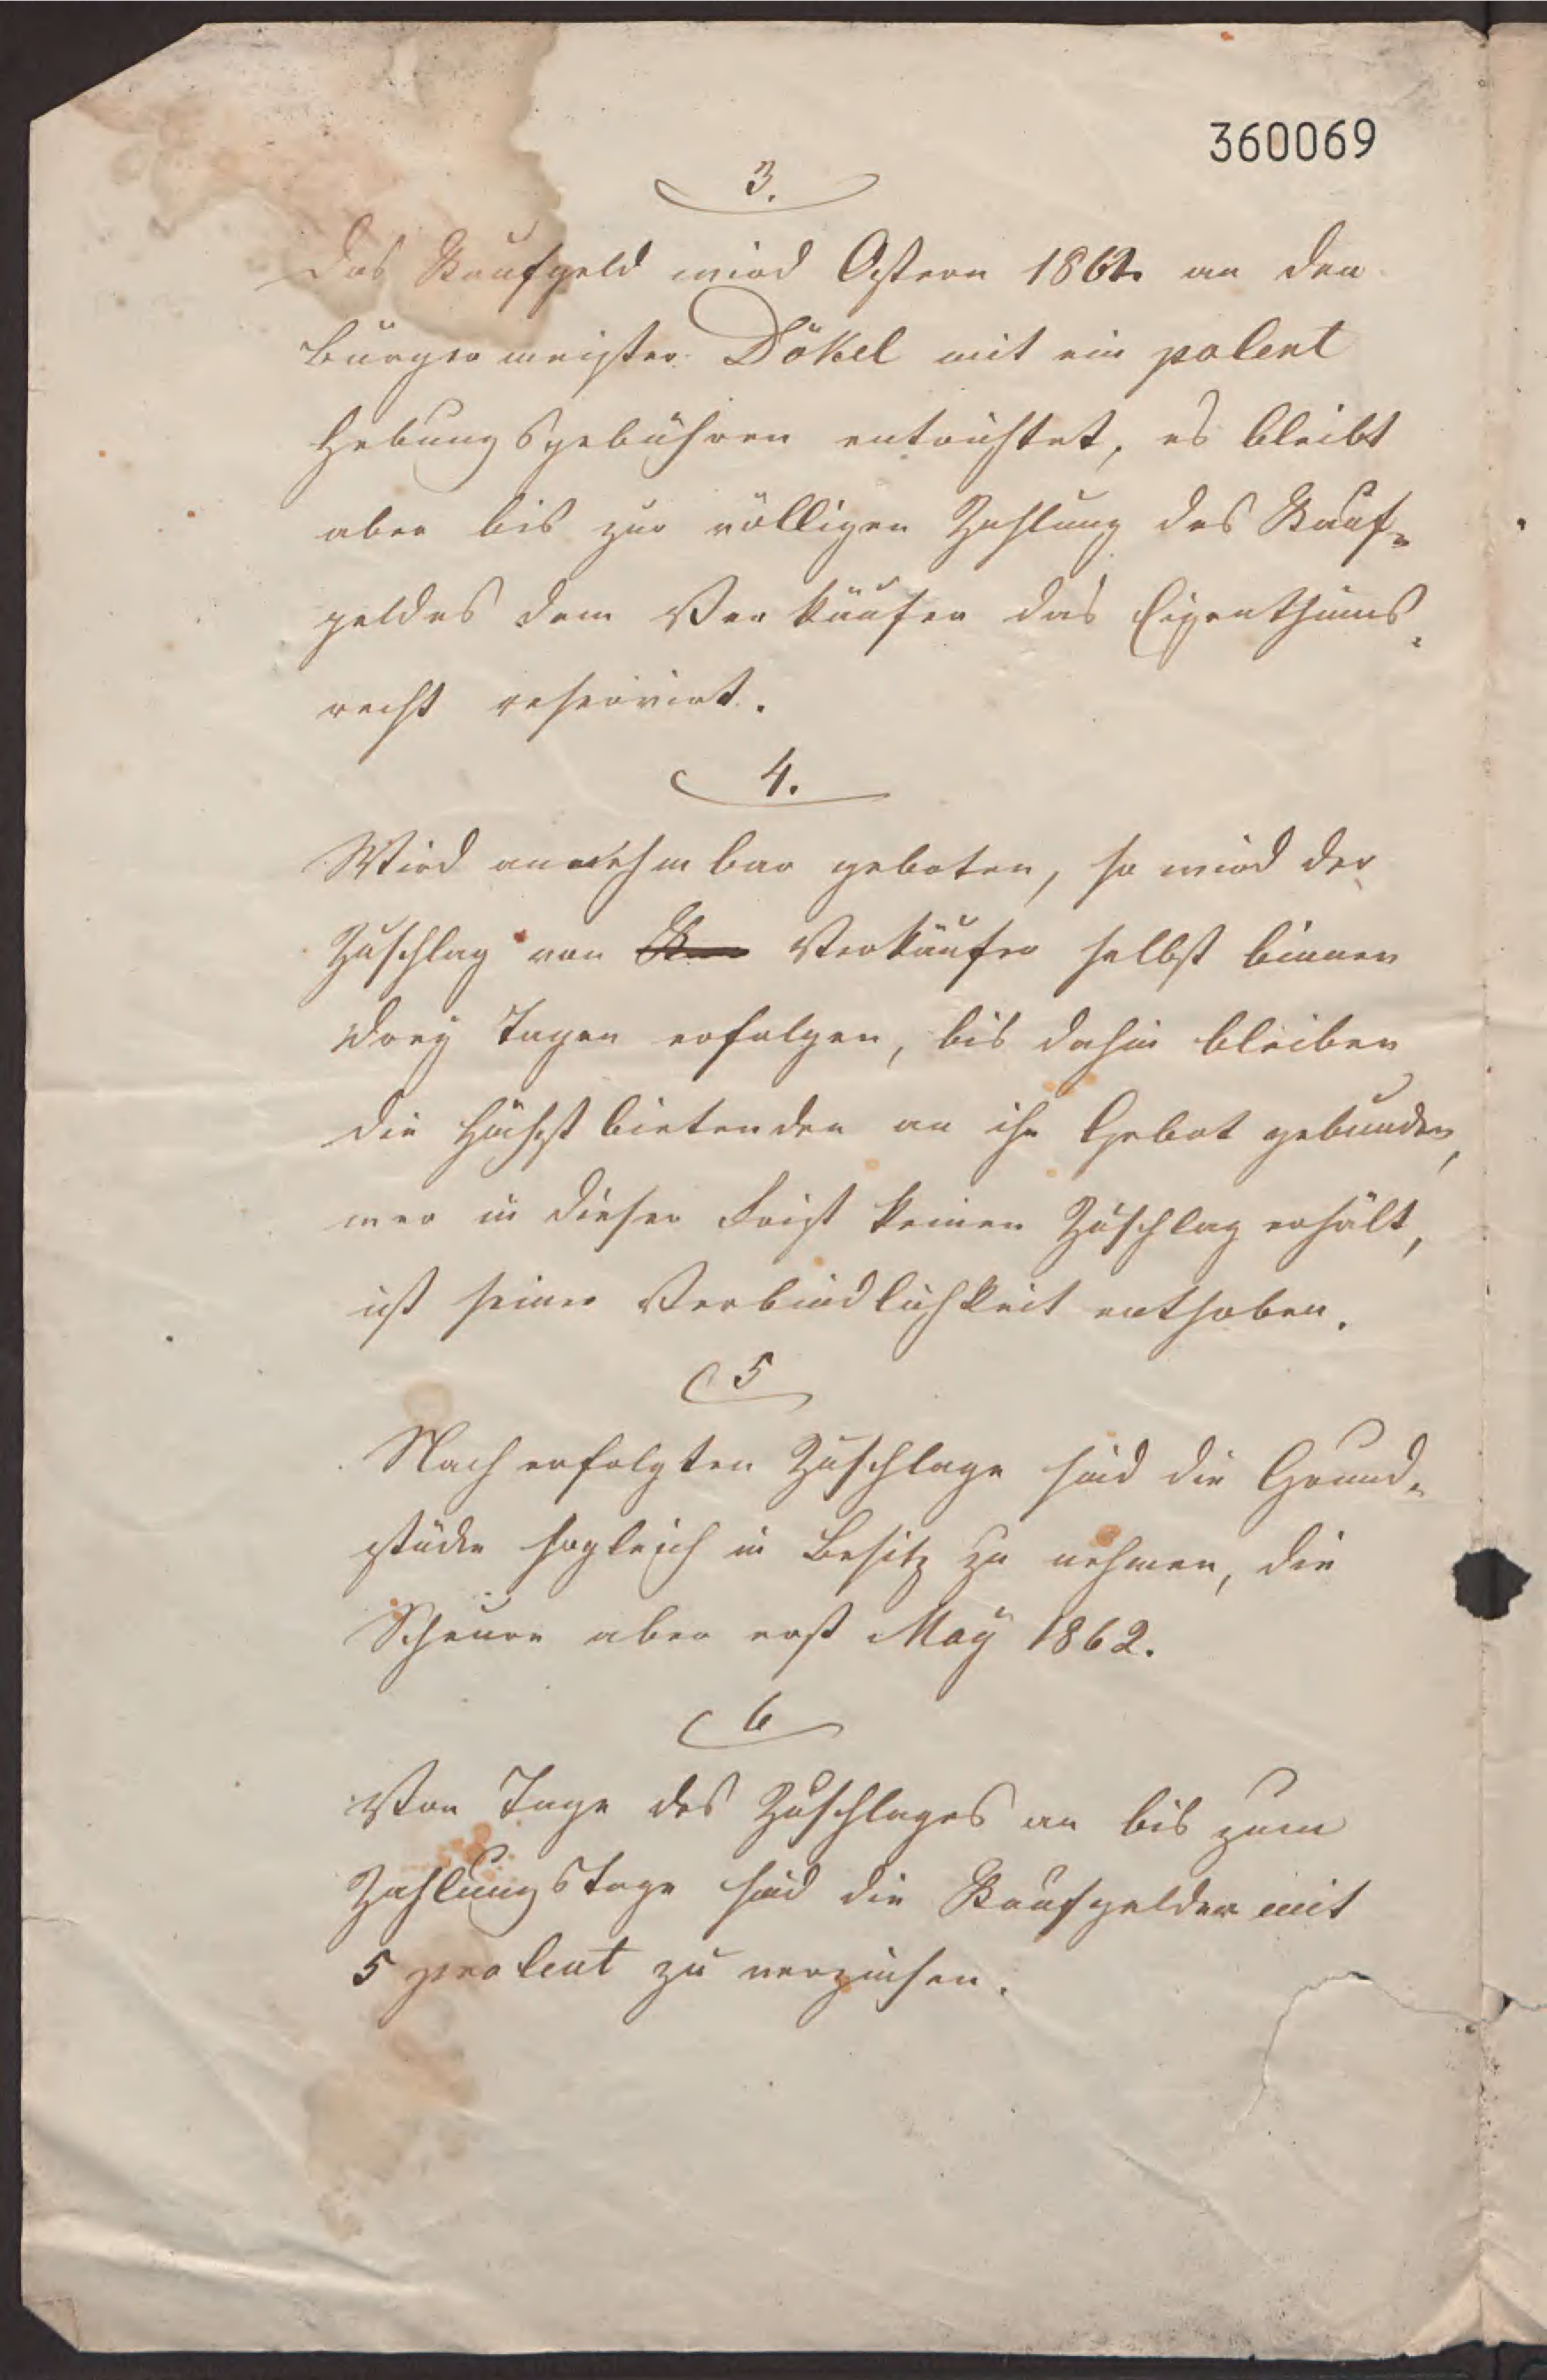 360069
3.
Das Kaufgeld wird Ostern 1862 an den
Bürgermeister Dökel mit ein poCent
Hebungsgebühren entrichtet, es bleibt
aber bis zur völligen Zahlung des Kauf-
geldes dem Verkäufer das Eigenthums-
recht reservirt.
4.
Wird annehmbar geboten, so wird der
Zuschlag von Verkäufer selbst binnen
drey Tagen erfolgen, bis dahin bleiben
die Höchstbietenden an ihr Gebot gebunden,
wer in dieser Frist keinen Zuschlag erhält,
ist seiner Verbindlichkeit enthoben.
5
Nach erfolgten Zuschlage sind die Grund-
stücke sogleich in Besitz zu nehmen, die
Scheure aber erst May 1862.
6
Von Tage des Zuschlages an bis zum
Zahlungstage sind die Kaufgelder mit
5 proCent zu verzinsen.